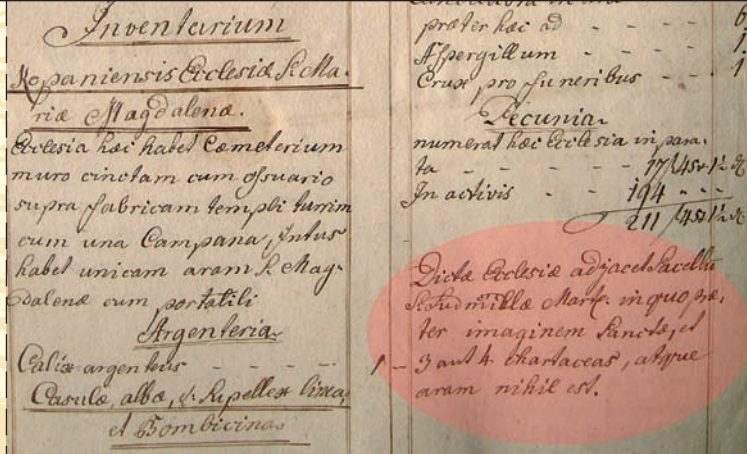 Inventarium
Kopaniensis Ecclesiæ S. Ma-
riæ Magdalenæ.
Ecclesia hæc habet Cæmeterium
muro cinctam cum ossuario
supra fabricam templi turrim
cum una Campana, Intus
habet unicam aram S. Mag-
dalenæ cum portatili
Argenteria
Calix argenteus - - - - - 1 -
Casulæ, albæ, et Supellex linea,
et Bombicina
præter hæc ad - - - - 6
Aspergillum - - - - 1
Crux pro funeribus - - - 1
Pecunia
numerat hæc Ecclesia in para-
ta - - - - 17 f 45 x 1½
In activis - - - 194 - -
211 f 45 x 1½
Dictæ Ecclesiæ adjacet Sacellū
S. Ludmillæ Mart. in quo præ-
ter imaginem Sanctæ, et
3 aut 4. chartaceas, atque
aram nihil est.